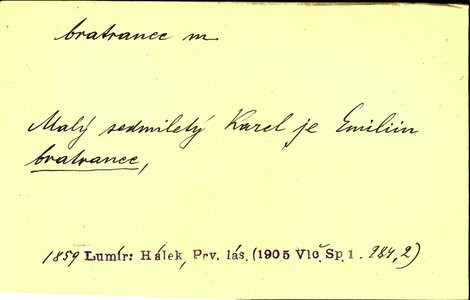 bratranec m
Malý sedmiletý Karel je Emiliin
bratranec,
1859 Lumír: Hálek, Prv. lás. (1905 Vlč. Sp. 1. 284,2)